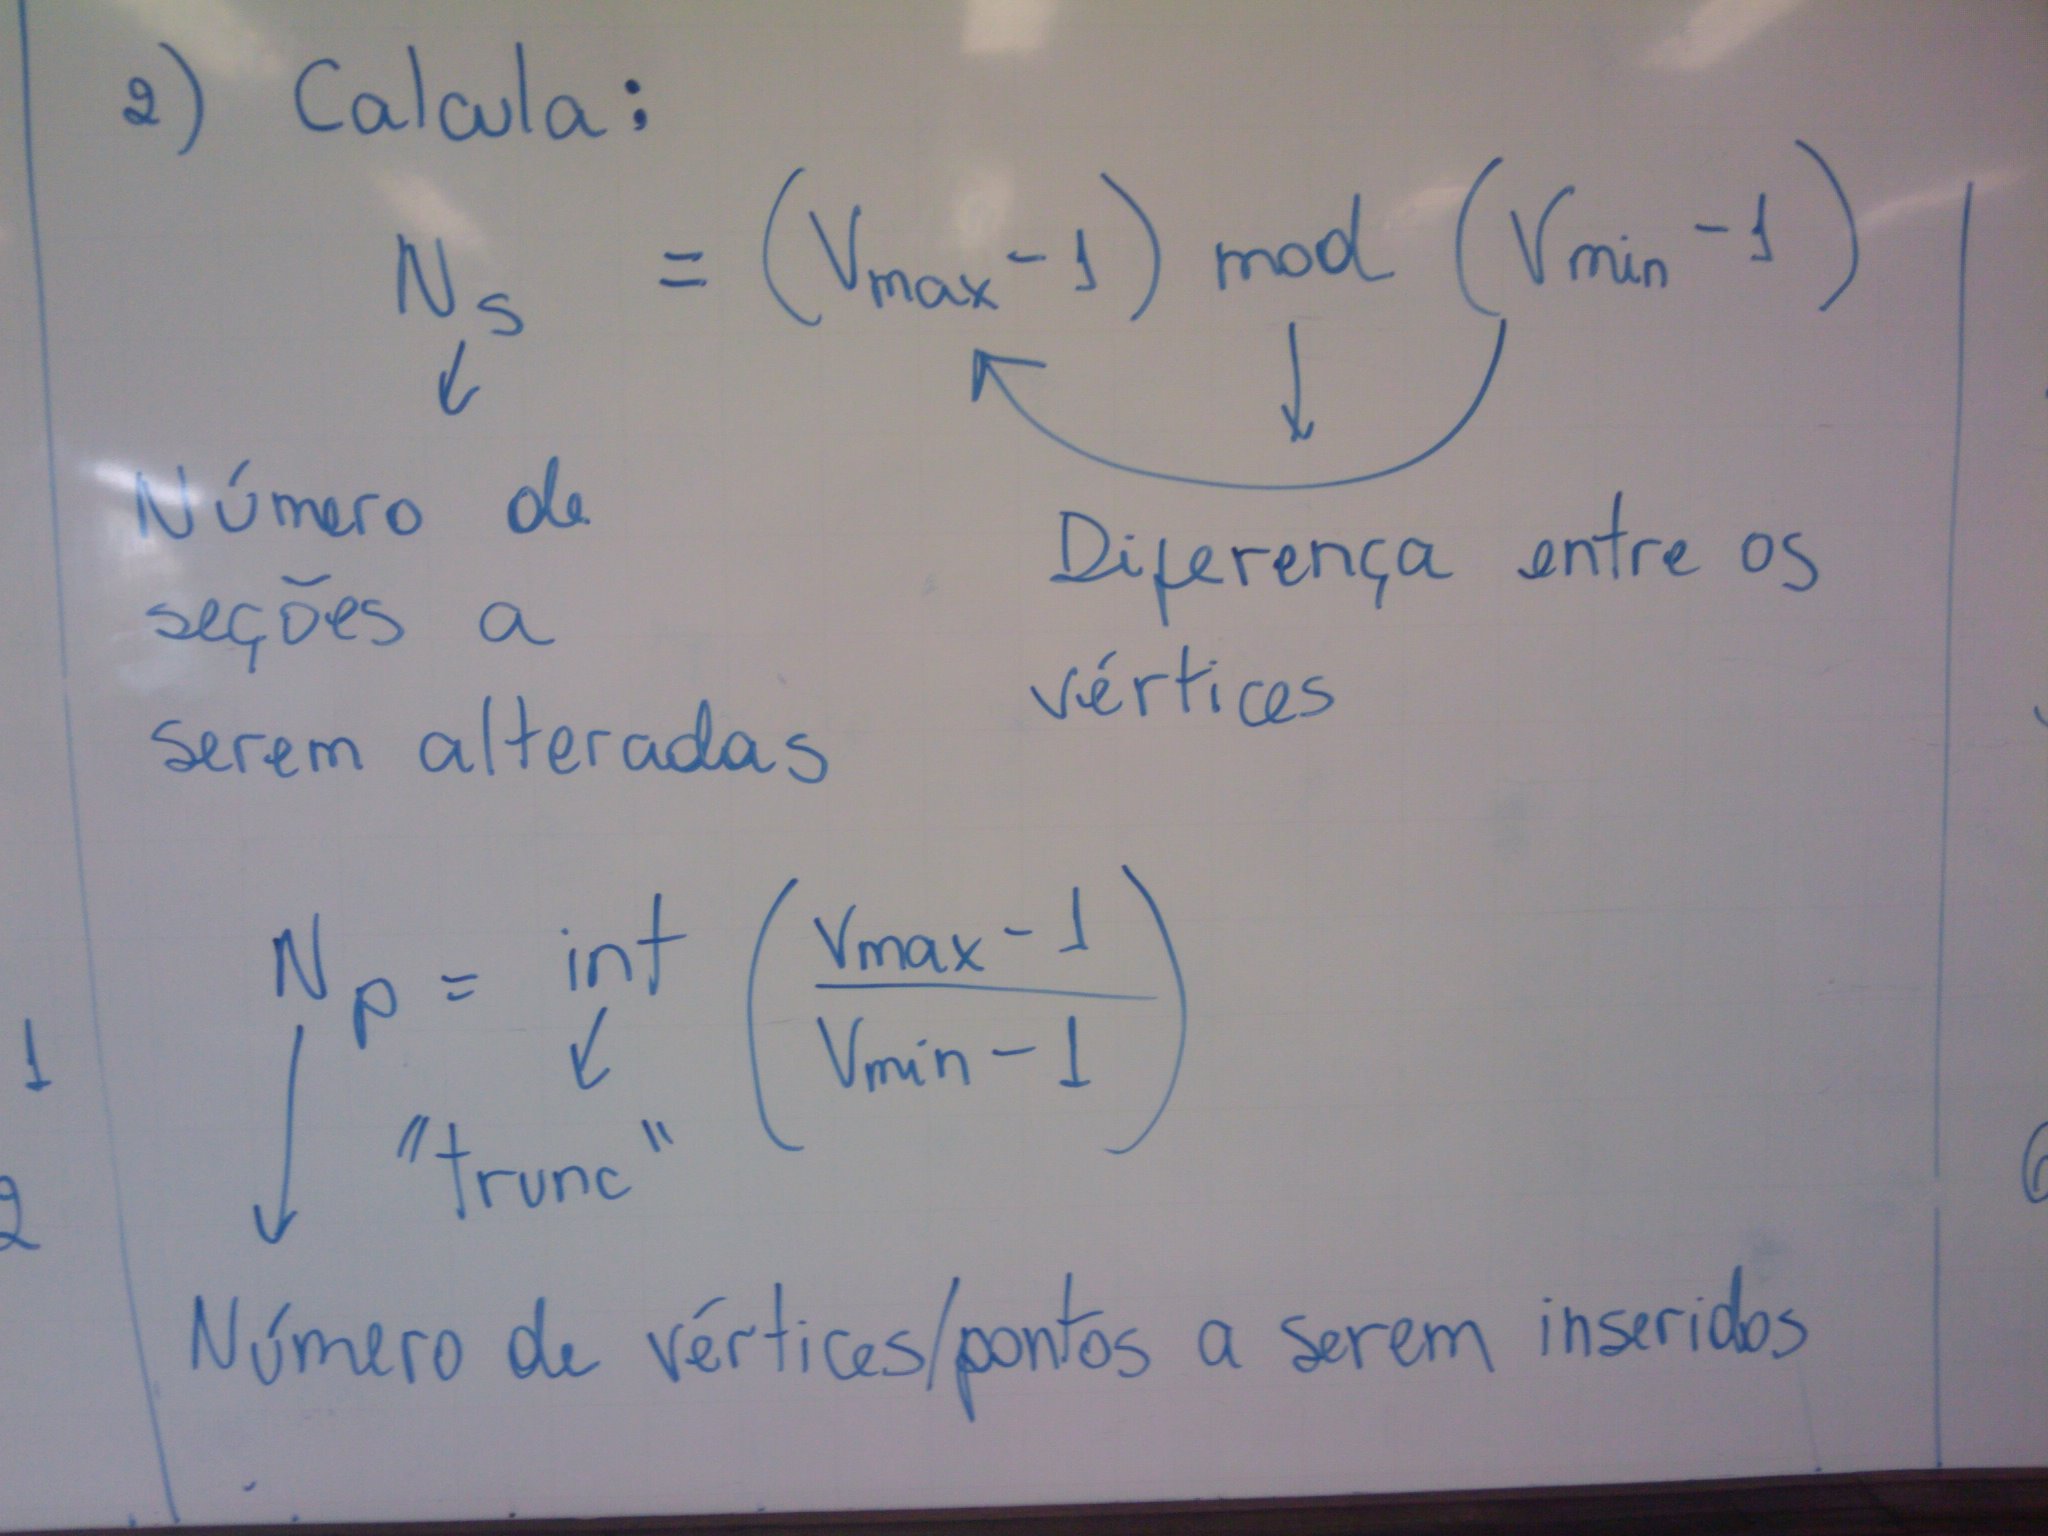 2) Calcula:
Ns = (Vmax - 1) mod (Vmin - 1)
↓ ↓
Número de
seções a
serem alteradas
Diferença entre os
vértices
Np = int (Vmax - 1 / Vmin - 1)
↓ ↓
"trunc"
Número de vértices/pontos a serem inseridos
1
2
6